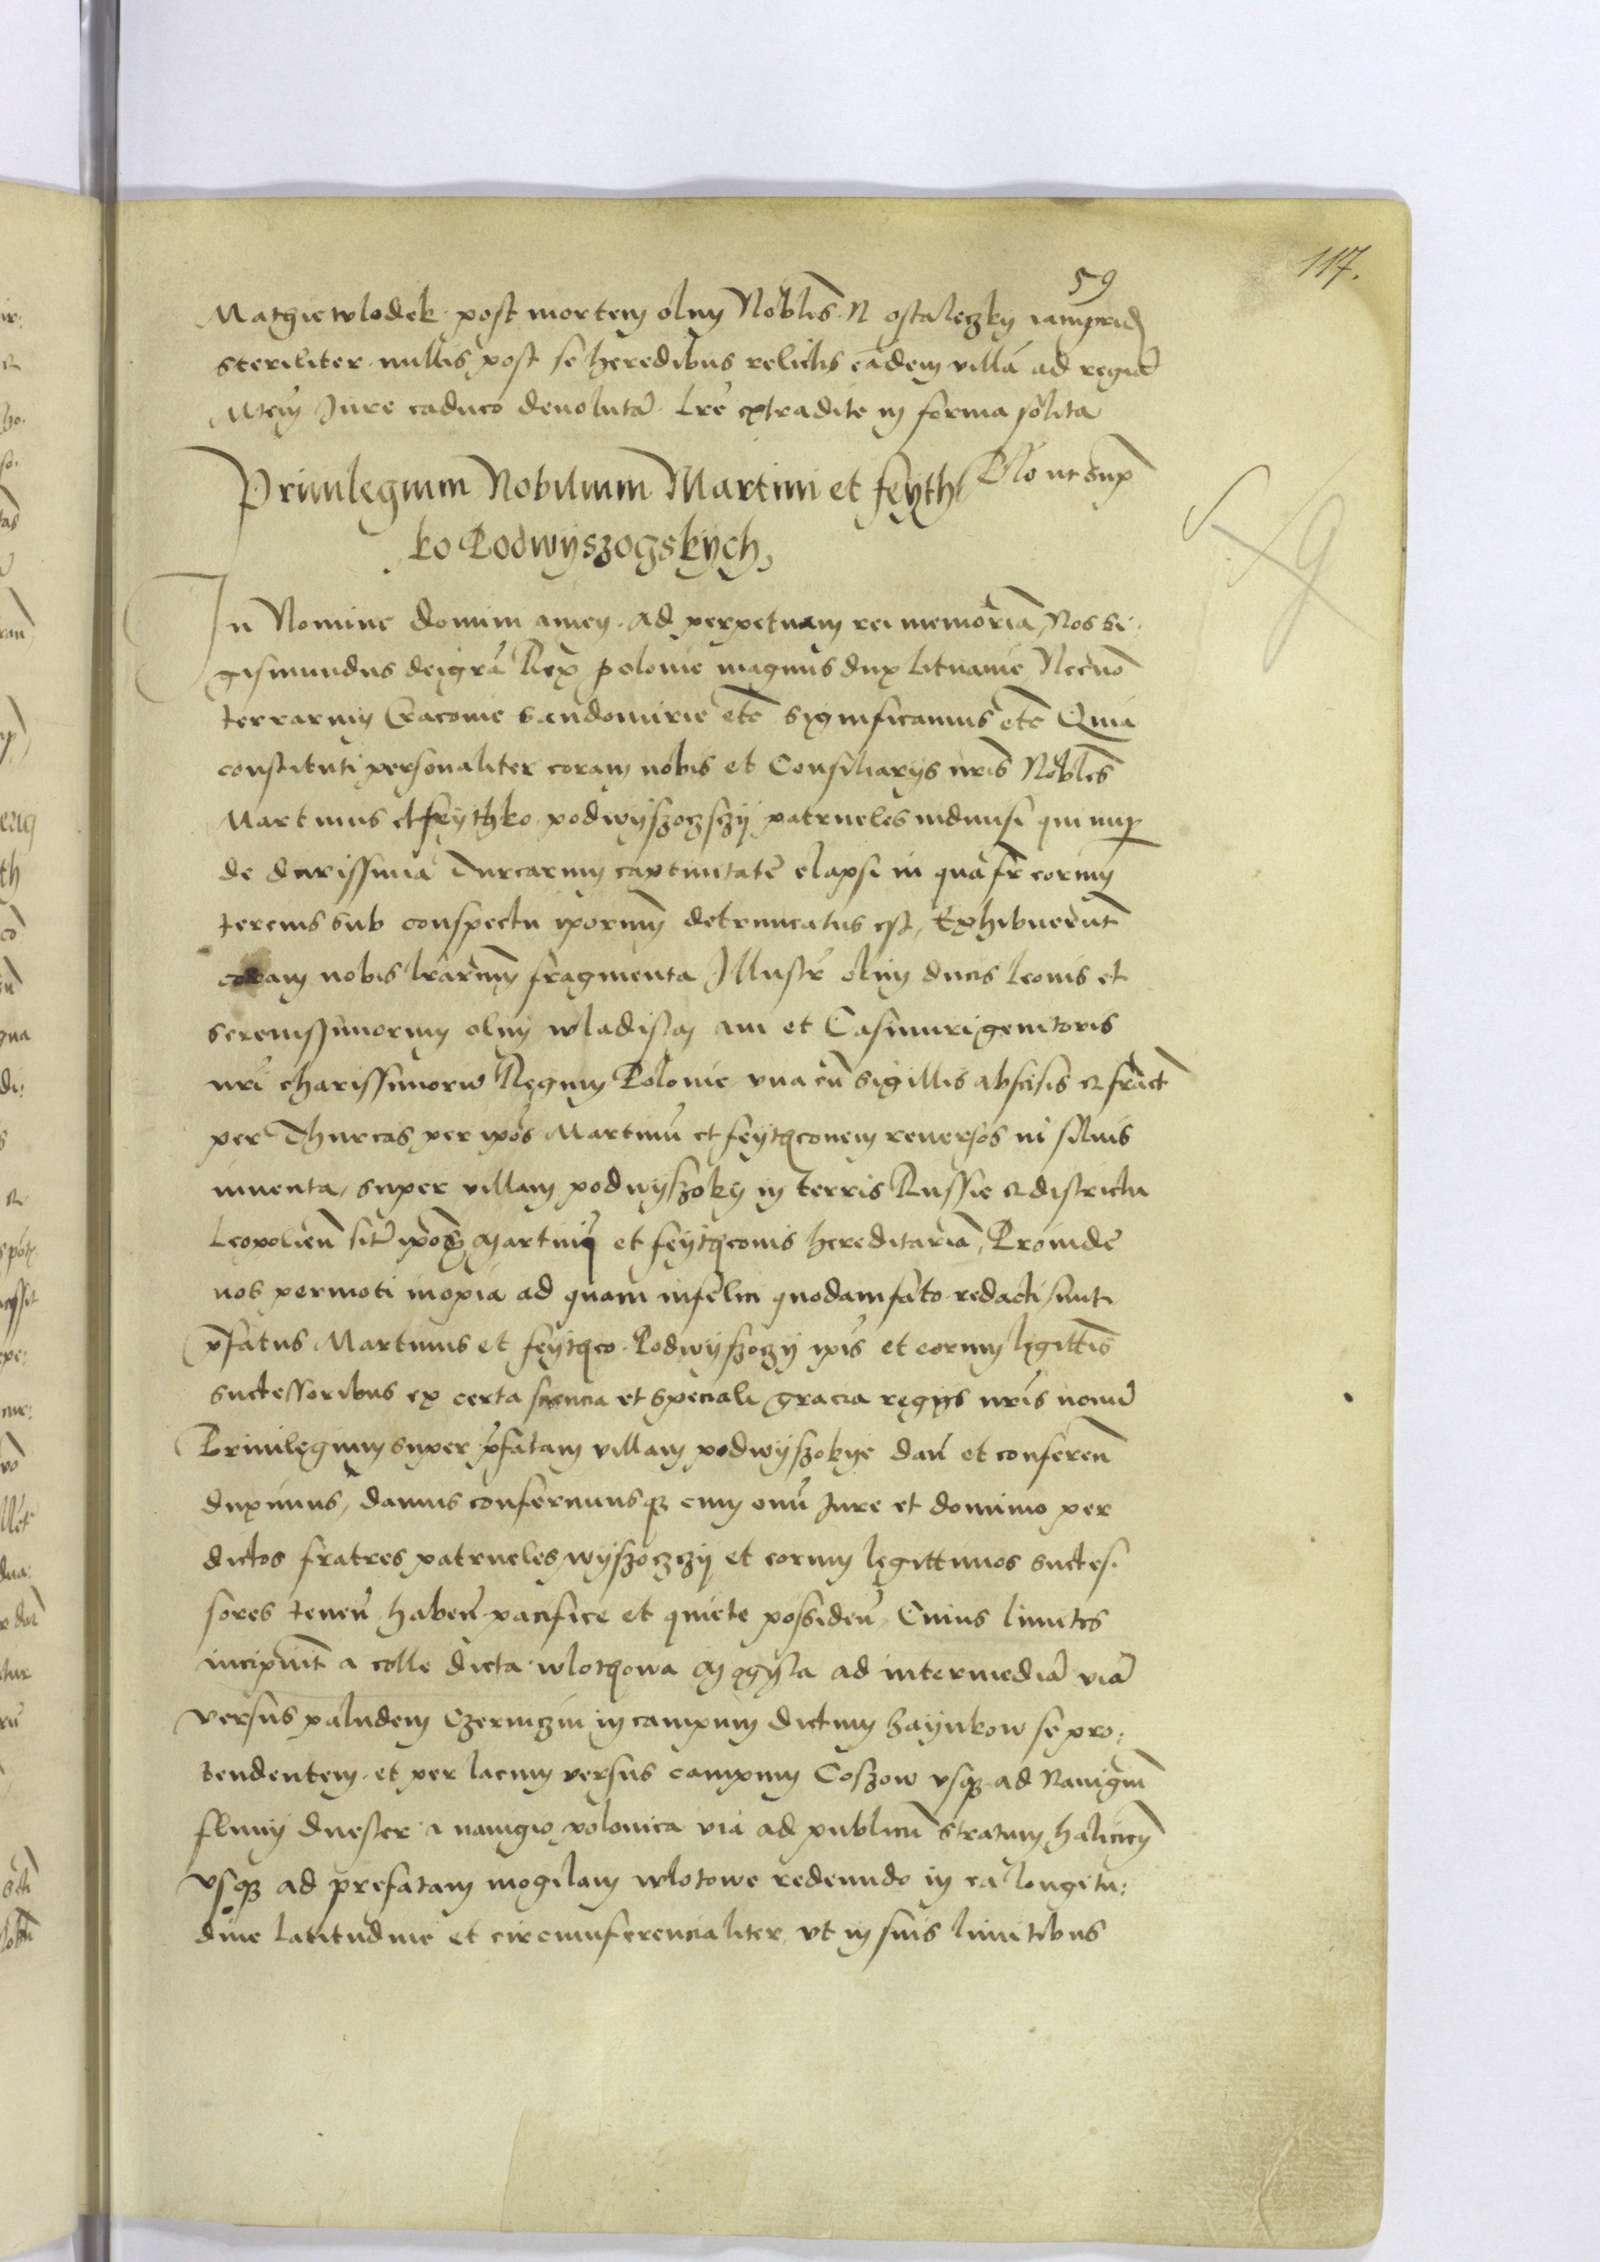 117.
59
Mathie wlodek post mortem olim Noblis N ostaleczky iampridem
steriliter nullis post se heredibus relictis eadem villa ad regia
Mtem Jure caduco devoluta. Lre extradite in forma solita
Privilegium Nobilium Martini et feyth
Rlo ut supra
ko Podwyszogskych,
In Nomine domini amen. ad perpetuam rei memoria, Nos Si-
gismundus dei gra Rex polonie magnus dux lituanie Necno
terrarum Cracovie Sandomirie etc Significamus etc Quia
constituti personaliter coram nobis et Consiliarys nris Nobles
Martinus et feythko podwyszoczscy patrueles indivisi qui nuper
de durissima Turcarum captivitate elapsi in qua fr eorum
tercius sub conspectu iporum detruncatus est, Exhibuerunt
coram nobis lrarum fragmenta Illustr olim ducis leonis et
serenissimorum olim wladislai avi et Casimiri genitoris
nri charissimoru Regum Polonie una cu sigillis abscisis et fract
per Thurcas per ipos Martinu et feythconem reversos in silvis
inventa, super villam podwyszoky in terris Russie et districtu
Leopolien sit ipos Martini et feythconis hereditaria, Proinde
nos permoti inopia ad quam infelici quodam fato redacti sunt
pfatus Martinus et feythco Podwyszoczy ipis et eorum legittis
successoribus ex certa sciencia et speciali gracia regys nris nomi
Privilegium super pfatam villam podwyszokye dan et conferen
duximus, damus conferimusqz cum omi Jure et dominio per
dictos fratres patrueles wyszoczczy et eorum legittimos succes-
sores tenen haben pacifice et quiete possiden, Cuius limites
incipiunt a colle dicta wlothowa Mogyla ad intermedia via
versus paludem Czerniczin in campum dictum haynkow se pro:
tendentem et per lacum versus campum Coszow usqz ad Navigiu
fluvy dnester a navigio polonica via ad publicu stratum halicien
usqz ad prefatam mogilam wlotowe redeundo in ea longitu:
dine latitudine et circumferencialiter ut in suis limitibus